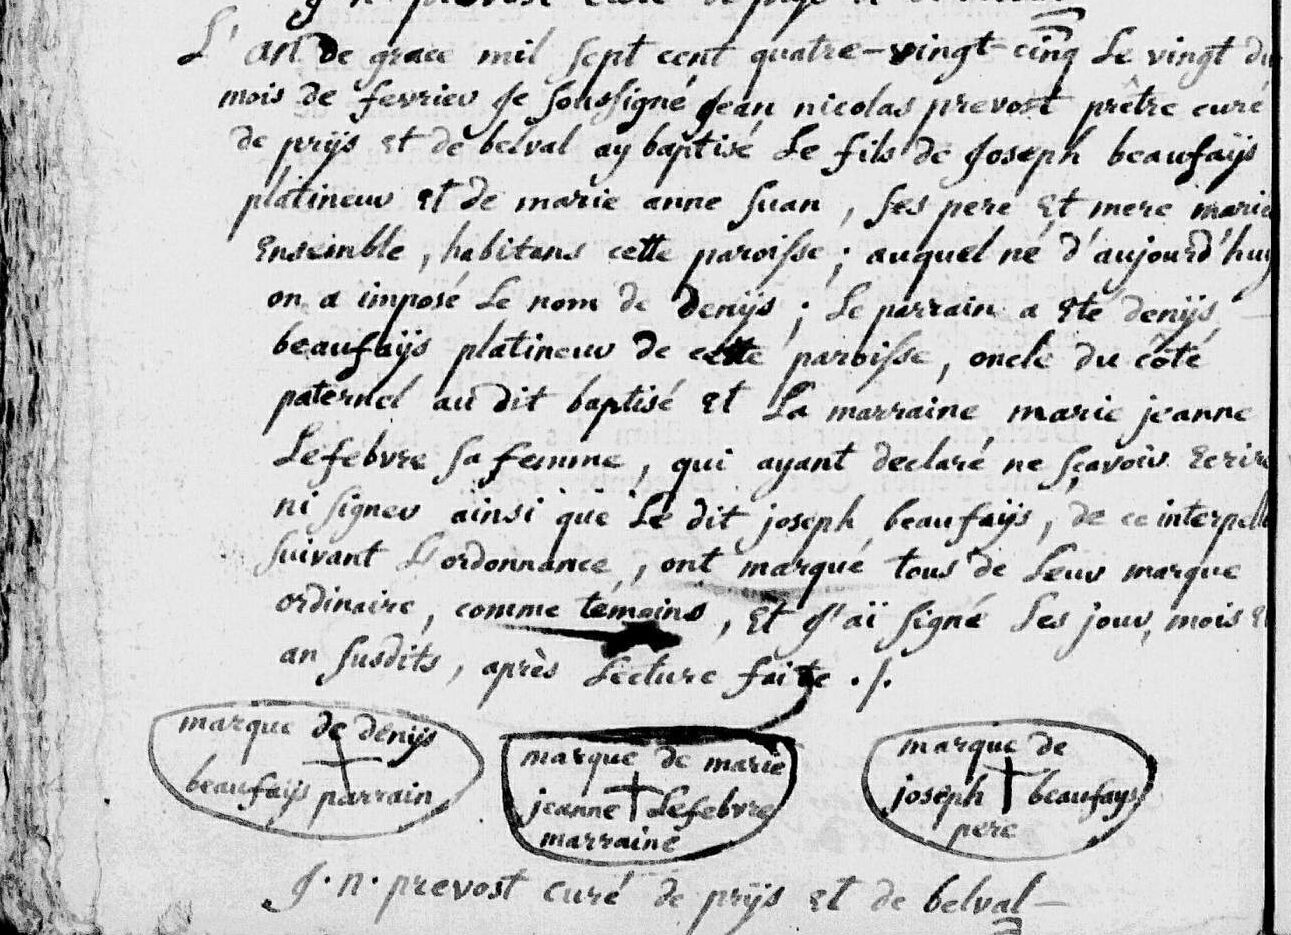 J. n. prevost curé de prÿs et de belval
L'an de grace mil sept cent quatre-vingt-cinq Le vingt du
mois de fevrier Je soussigné Jean nicolas prevost prêtre curé
de prÿs et de belval ay baptisé Le fils de Joseph beaufaÿs
platineur et de marie anne suan, ses pere et mere marie
Ensemble, habitans cette paroisse; auquel né d'aujourd'huy
on a imposé Le nom de denÿs; Le parrain a eté denÿs
beaufaÿs platineur de cette paroisse, oncle du côté
paternel au dit baptisé et La marraine marie jeanne
Lefebvre sa femme, qui ayant declaré ne sçavoir Ecrire
ni signer ainsi que Le dit joseph beaufaÿs, de ce interpellé
suivant L'ordonnance, ont marqué tous de Leur marque
ordinaire, comme témoins, et J'aï signé Les jour, mois et
an susdits, après Lecture faite ./.
marque de denÿs
beaufaÿs parrain
marque de marie
jeanne Lefebvre
marraine
marque de
joseph beaufays
pere
J. n. prevost curé de prÿs et de belval